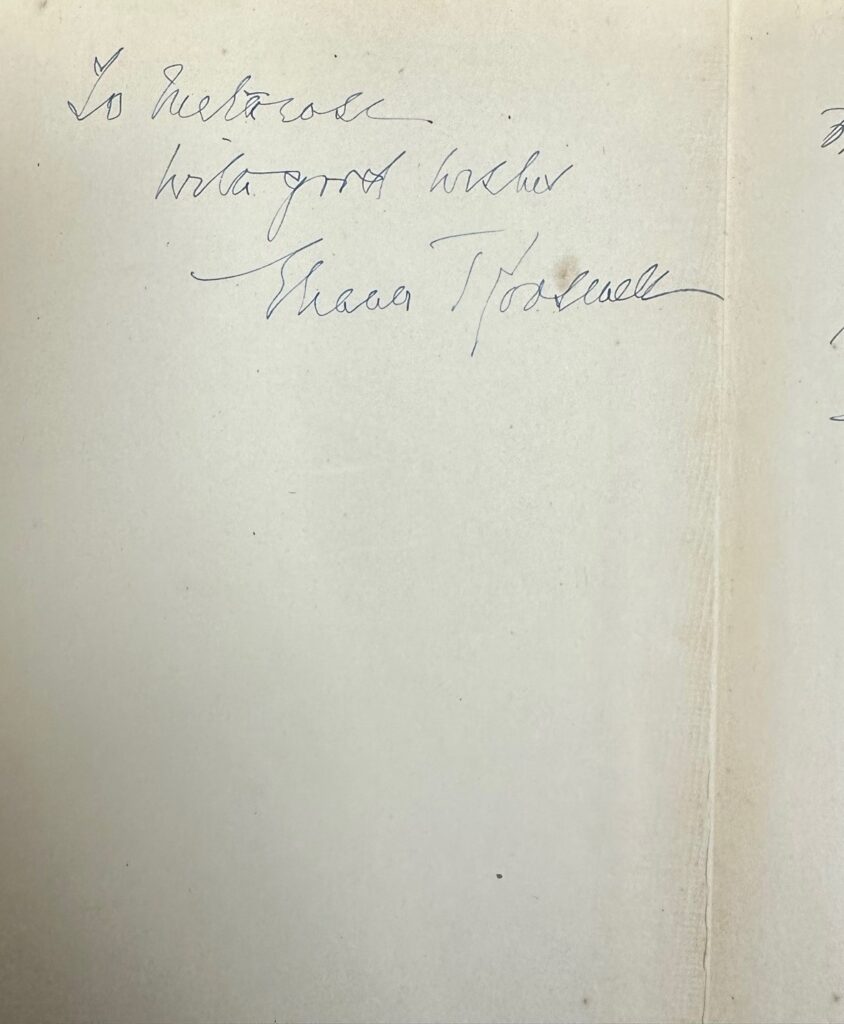 To Meta rose
with good wishes
Eleanor Roosevelt